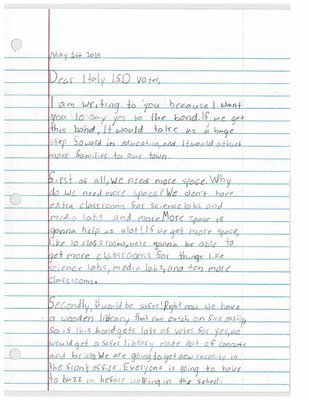 May 1st 2015
Dear Italy ISD Voter,
I am writing to you because I want
you to say yes to the bond. If we get
this bond, It would take us a huge
step foward in education, and It would attract
more families to our town.
First of all, we need more space. Why
do we need more space? We don't have
extra classrooms for science labs and
media labs and more. More space is
gonna help us alot! If we get more space,
like 10 classrooms, were gonna be able to
get more classrooms for things like
science labs, media labs, and ten more
classrooms.
Secondly, it would be safer! Right now we have
a wooden library that can catch on fire easily
so is this bond gets lots of votes for yes, we
would get a safer library made out of concrete
and bricks. We are going to get new security in
the front office. Everyone is going to have
to buzz in before walking in the school.